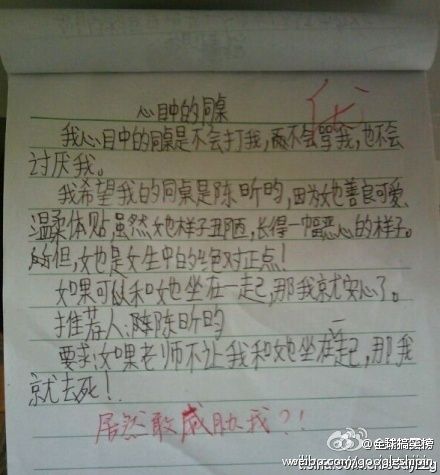 心目中的同桌
优
我心目中的同桌是不会打我,不会骂我,也不会
讨厌我。
我希望我的同桌是陈昕昀,因为她善良可爱、
温柔体贴,虽然她样子丑陋,长得一幅恶心的样子。
但,她也是女生中的绝对正点!
如果可以和她坐在一起,那我就安心了。
推荐人:陈昕昀
要求:如果老师不让我和她坐在一起,那我
就去死!
居然敢威胁我?!
@全球搞笑榜
weibo.com/googleshipin